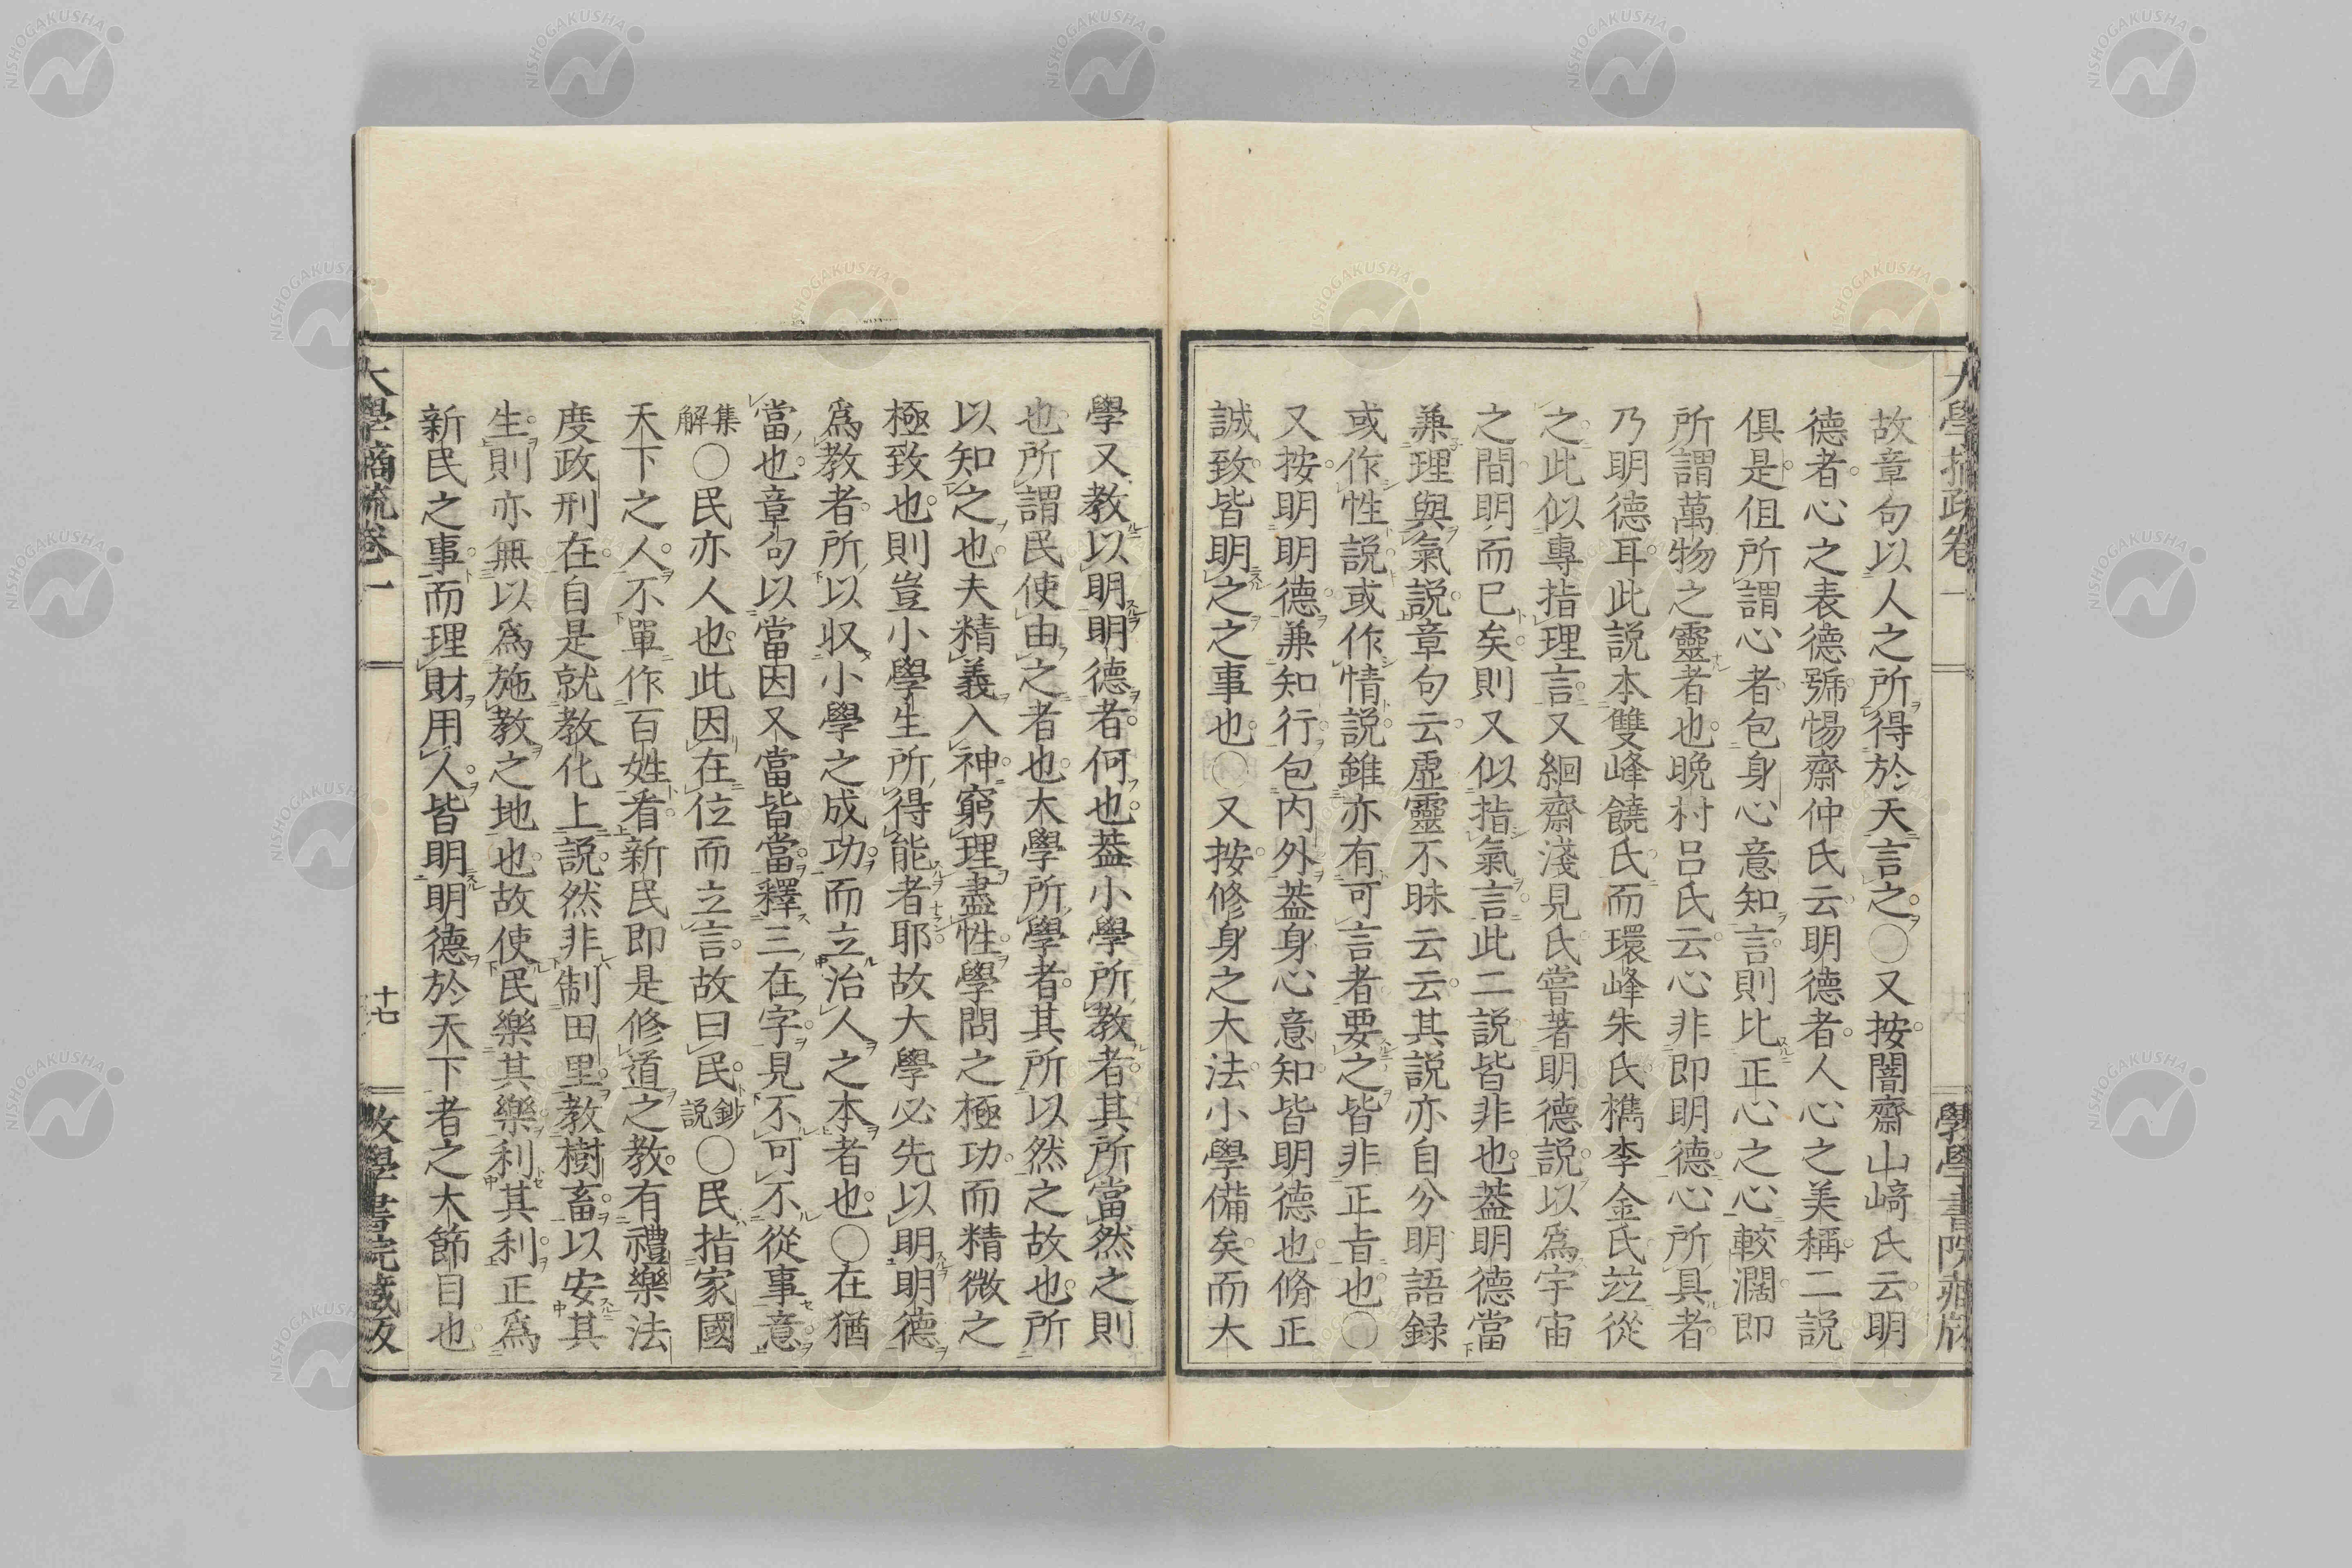 故章句以人之所得於天言之〇又按闇齋山﨑氏云明
德者心之表德號惕齋仲氏云明德者人心之美稱二説
俱是但所謂心者包身心意知言則比正心之心較濶即
所謂萬物之靈者也晩村呂氏云心非即明德心所具者
乃明德耳此説本雙峰饒氏而環峰朱氏檇李金氏竝從
之此似專指理言又絅齋淺見氏嘗著明德説以爲宇宙
之間明而已矣則又似指氣言此二説皆非也葢明德當
兼理與氣説章句云虛靈不昧云云其説亦自分明語録
或作性説或作情説雖亦有可言者要之皆非正旨也〇
又按明明德兼知行包内外葢身心意知皆明德也脩正
誠致皆明之之事也〇又按修身之大法小學備矣而大
學又教以明明德者何也葢小學所教者其所當然之則
也所謂民使由之者也大學所學者其所以然之故也所
以知之也夫精義入神窮理盡性學問之極功而精微之
極致也則豈小學生所得能者耶故大學必先以明明德
爲教者所以収小學之成功而立治人之本者也〇在猶
當也章句以當因又當皆當釋三在字見不可不從事意
集解〇民亦人也此因在位而立言故曰民鈔説〇民指家國
天下之人不單作百姓看新民即是修道之教有禮樂法
度政刑在自是就教化上説然非制田里教樹畜以安其
生則亦無以爲施教之地也故使民樂其樂利其利正爲
新民之事而理財用人皆明明德於天下者之大節目也
大學摘疏卷一
十七
學書院藏版
NISHOGAKUSHA